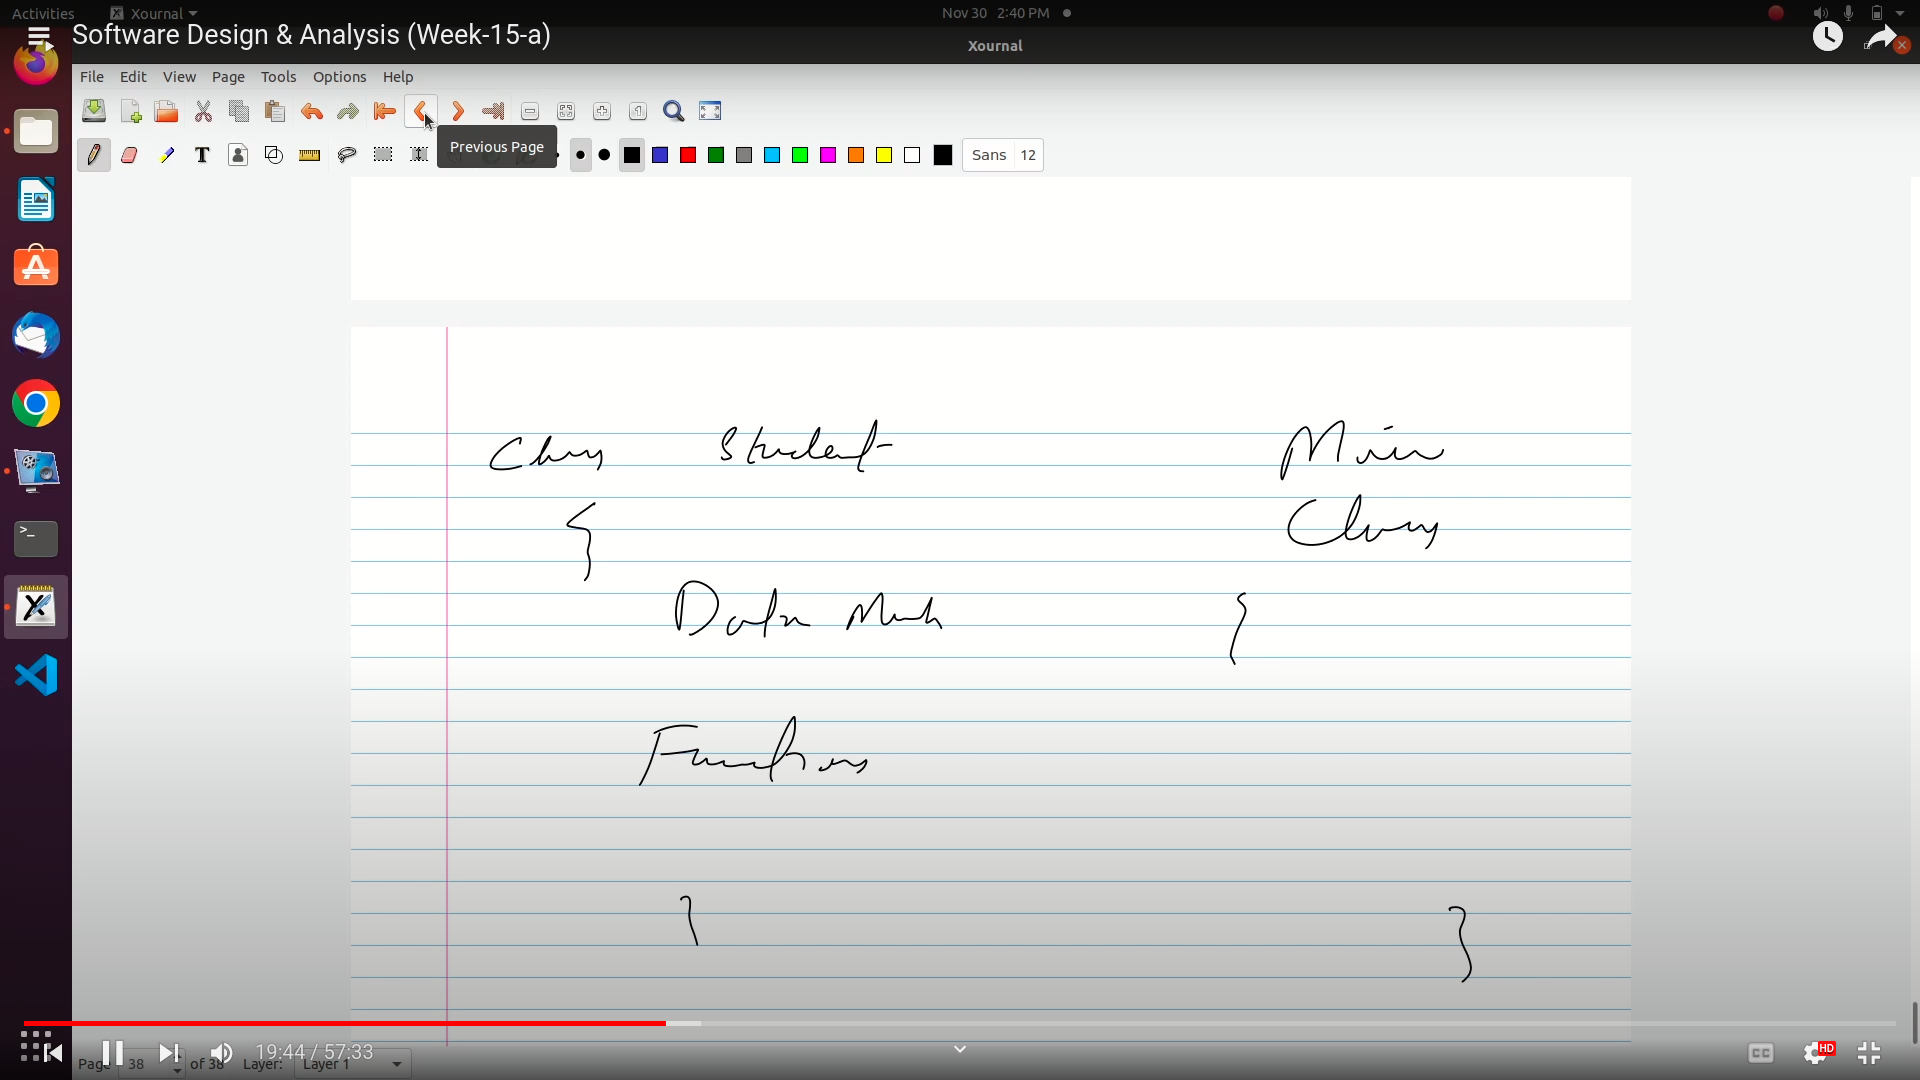 Activities Xournal Nov 30 2:40 PM
Software Design & Analysis (Week-15-a)
Xournal
File Edit View Page Tools Options Help
Previous Page
Sans 12
Class Student
Main
Class
{
Data Memb
{
Functions
}
}
19:44 / 57:33
CC HD
Page 38 of 38 Layer: Layer 1